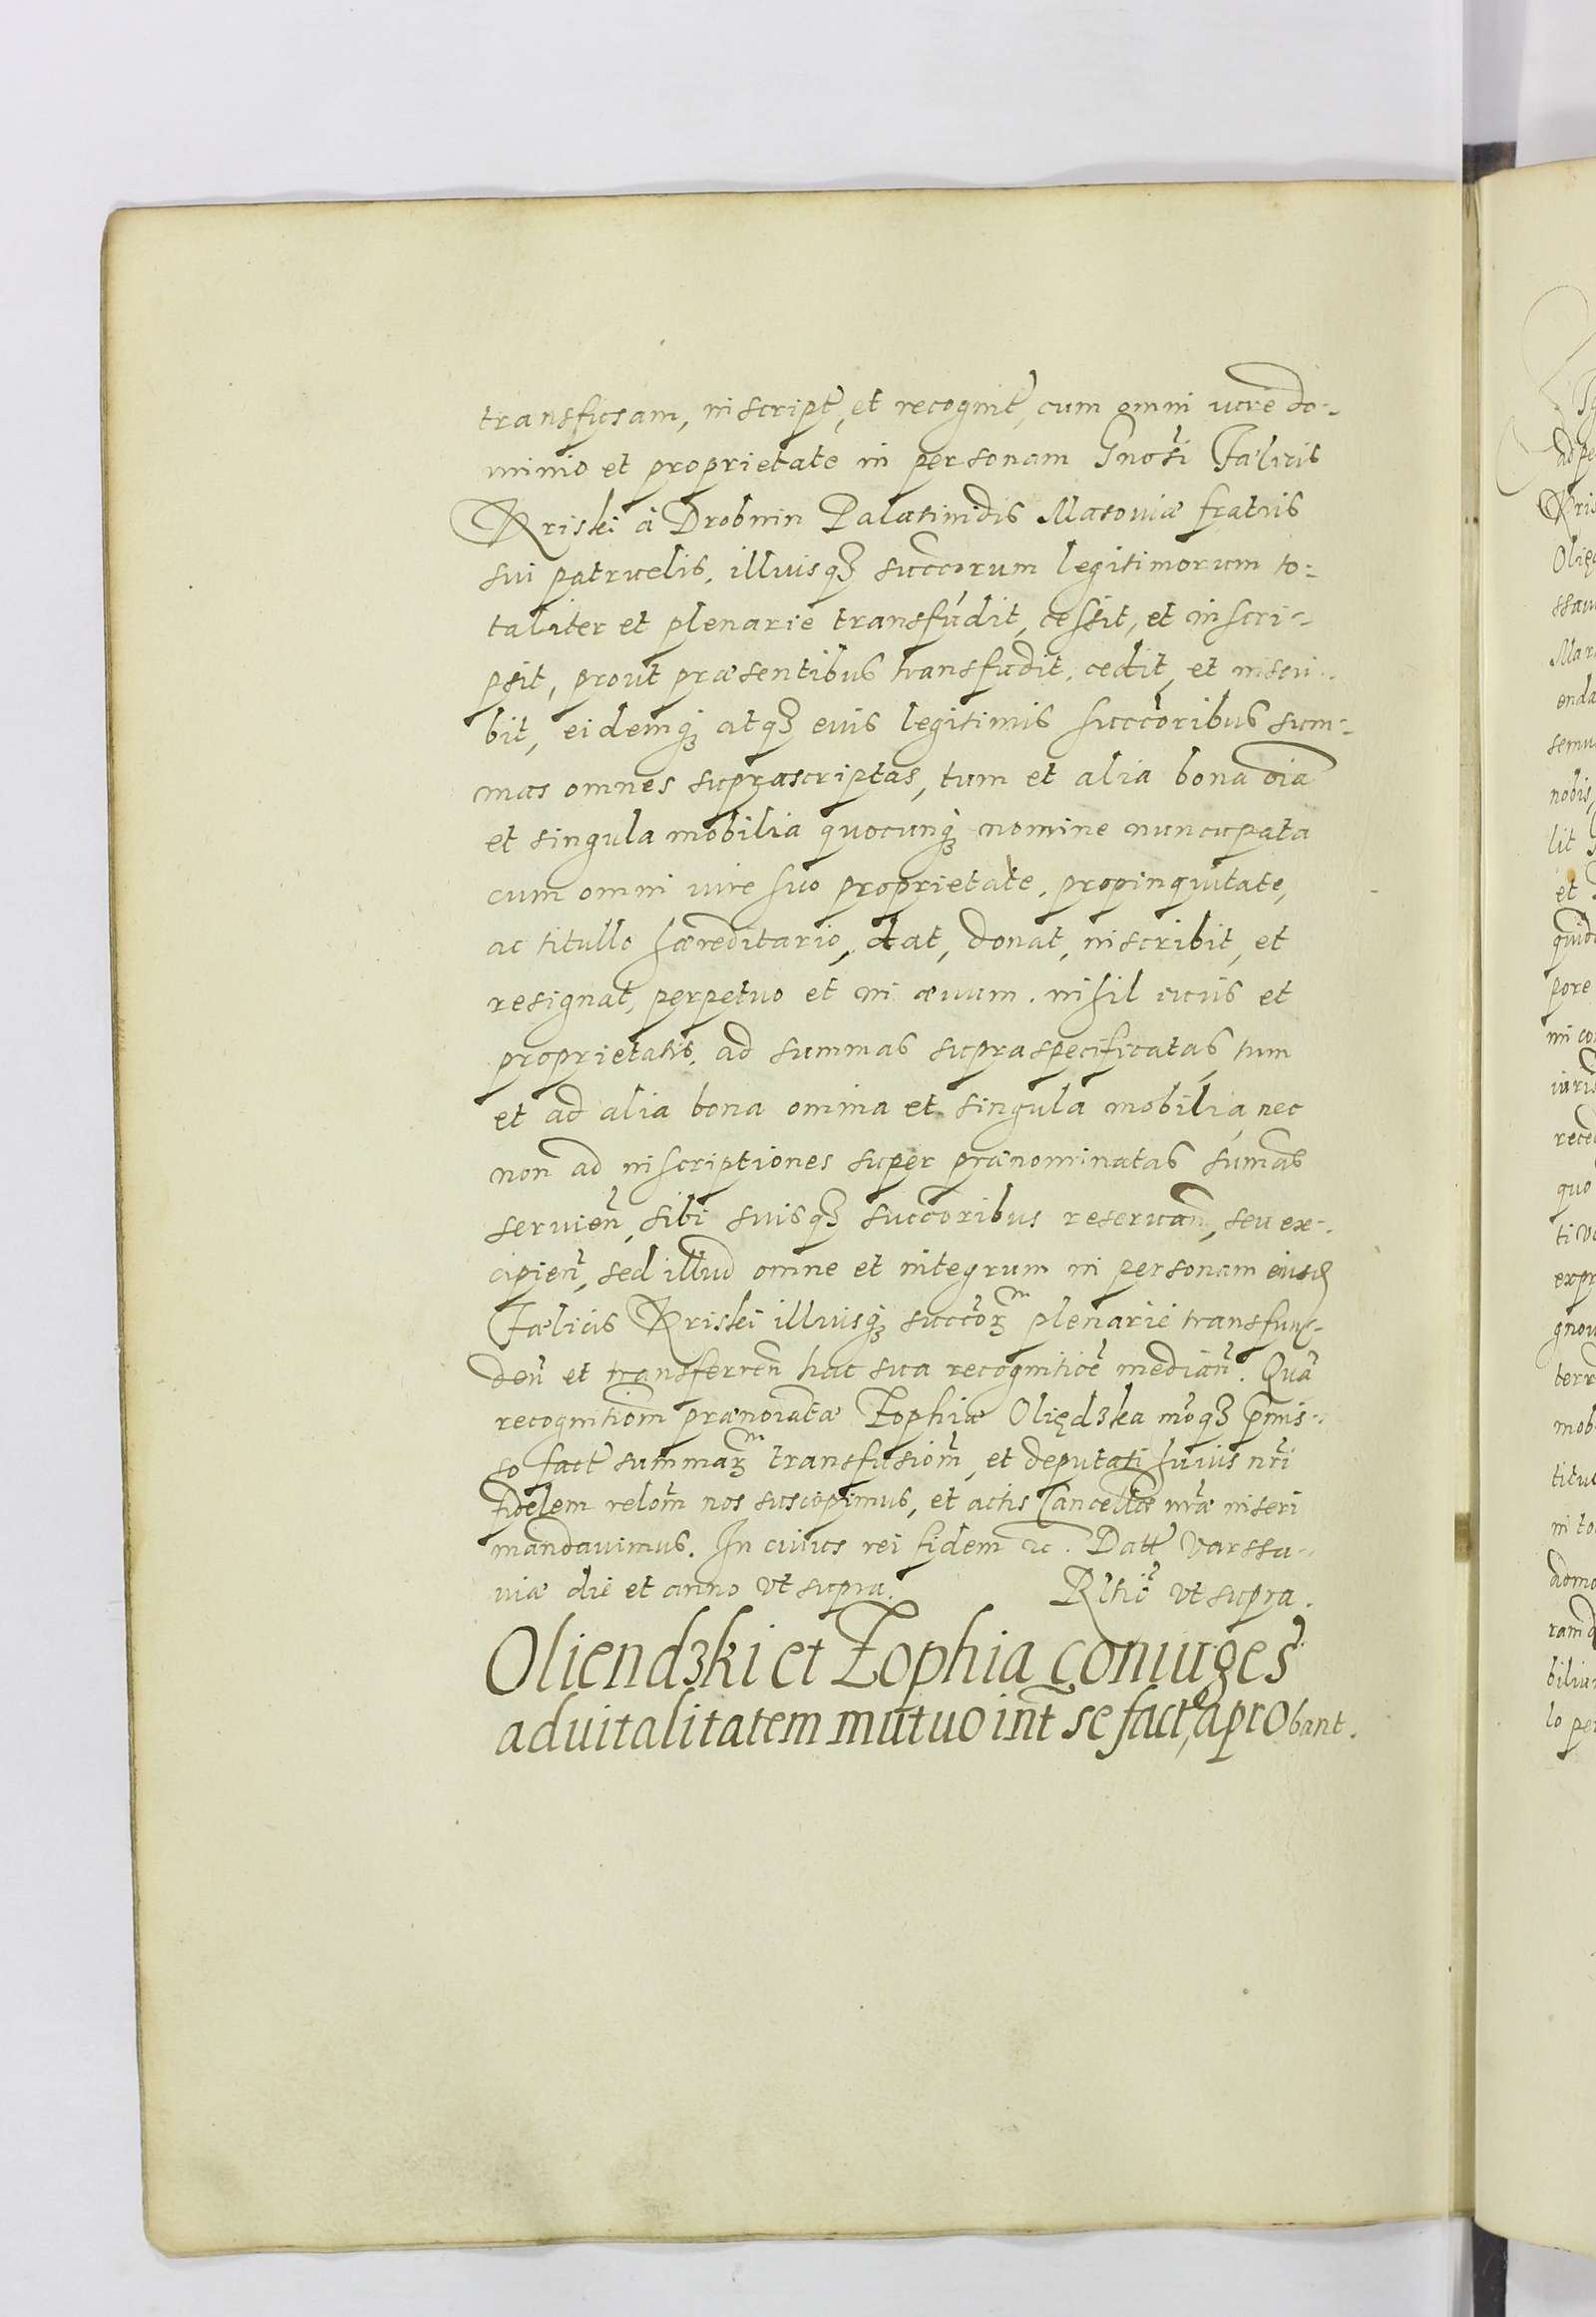 transfusam, inscript̃, et recognit̃, cum omni iure do-
minio et proprietate in personam Gnosi Fælicis
Kriski à Drobnin Palatinidis Masoviæ fratris
sui patruelis, illiusq₃ succorum legitimorum to-
taliter et plenarie transfudit, cessit, et inscri-
psit, prout præsentibus transfudit, cedit, et inscri-
bit, eidemq₃ atq₃ eius legitimis succoribus sum-
mas omnes suprascriptas, tum et alia bona oia
et singula mobilia quocunq₃ nomine nuncupata
cum omni iure suo proprietate, propinquitate,
ac titullo hæreditario, dat, donat, inscribit, et
resignat, perpetuo et in ævum. nihil iuris et
proprietatis, ad summas supraspecificatas, tum
et ad alia bona omina et singula mobilia, nec
non ad inscriptiones super prænominatas sum̃as
servieñ, sibi suisq₃ succoribus reservañ, seu ex-
cipieñ, sed illud omne et integrum in personam eiusd
Fælicis Kriski illiusq₃ succoꝝ plenarie transfun-
deñ et transferreñ hac sua recognitioẽ mediañ. Quã
recognitiom̃ prænoiatæ Zophiæ Olięd₃ka mo͂q₃ p̃mis-
so fact̃ summaꝝ transfusiom̃, et deputati huius nr̃i
fidelem relom̃ nos suscepimus, et actis Cancellæ nr̃æ inseri
mandavimus. In cuius rei fidem ꝛc. Datt̃ Varssa-
viæ die et anno vt supra. Rltiõ vt supra.
Oliend₃ki et Zophia coniuges
advitalitatem mutuo int̃ se fact̃, aprobant.